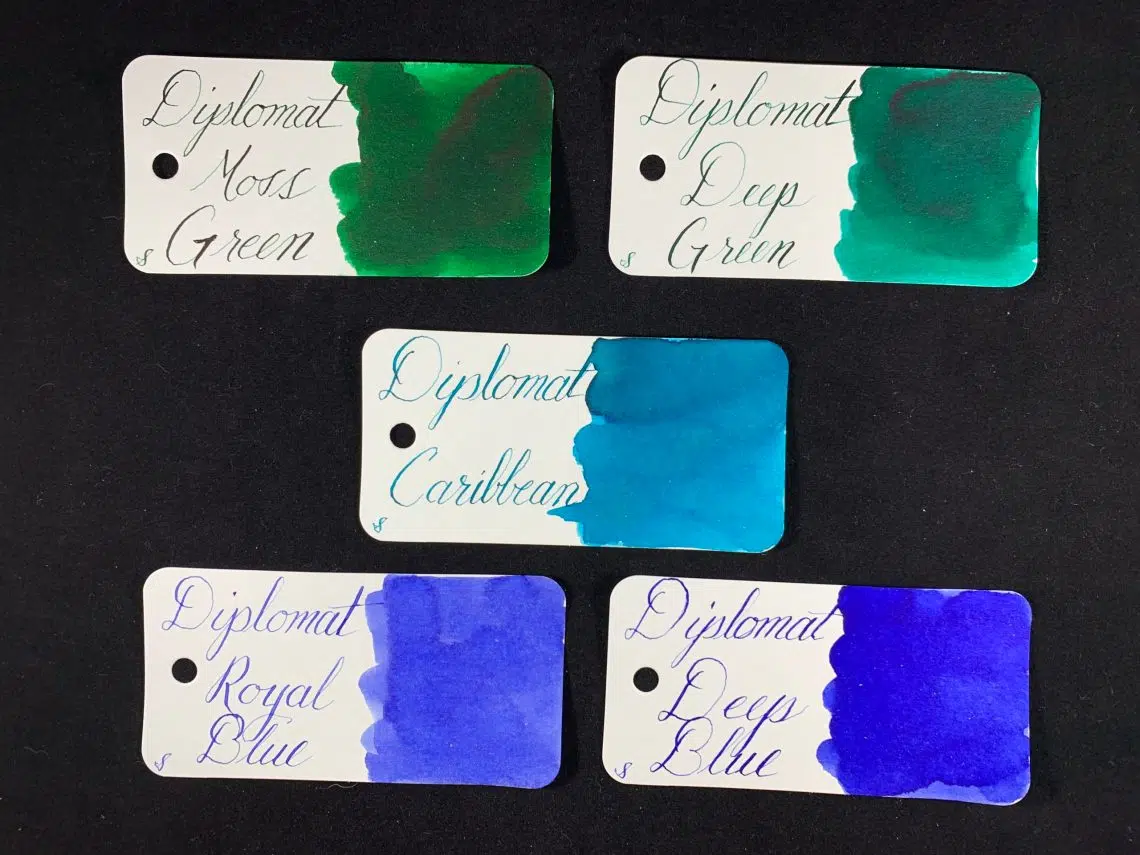 Diplomat
Moss
Green
Diplomat
Deep
Green
Diplomat
Caribbean
Diplomat
Royal
Blue
Diplomat
Deep
Blue